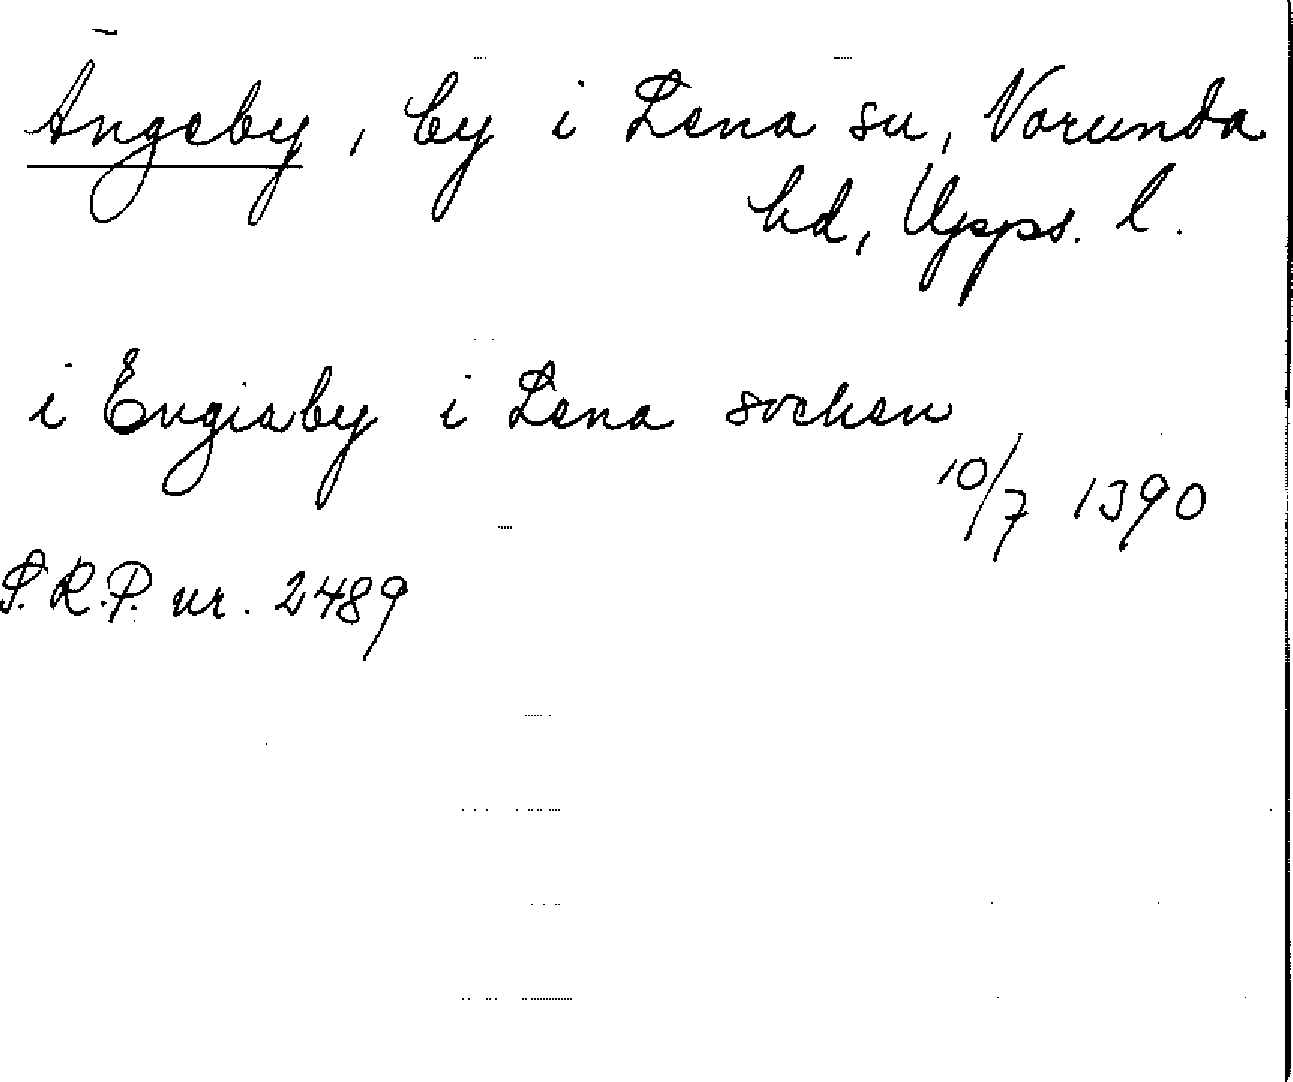 Ängeby, by i Lena sn, Norunda
hd, Upps. l.
i Engiaby i Lena sochen
10/7 1390
S.R.P. nr. 2489